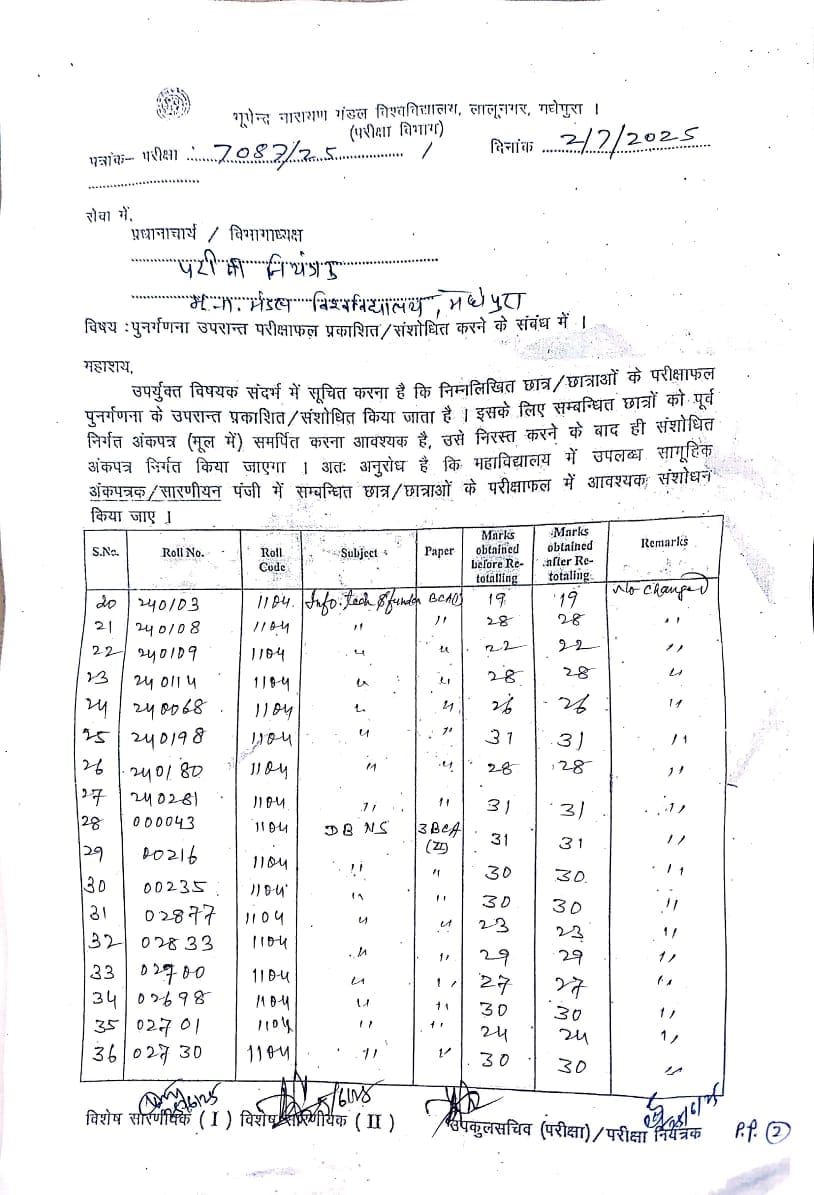 भूपेन्द्र नारायण मंडल विश्वविद्यालय, लालूनगर, मधेपुरा ।
(परीक्षा विभाग)
पत्रांक– परीक्षा : 7087/25 / दिनांक 2/7/2025
सेवा में,
प्रधानाचार्य / विभागाध्यक्ष
परीक्षा नियंत्रक
भू.ना. मंडल विश्वविद्यालय, मधेपुरा
विषय : पुनर्गणना उपरान्त परीक्षाफल प्रकाशित/संशोधित करने के संबंध में ।
महाशय,
उपर्युक्त विषयक संदर्भ में सूचित करना है कि निम्नलिखित छात्र/छात्राओं के परीक्षाफल
पुनर्गणना के उपरान्त प्रकाशित/संशोधित किया जाता है । इसके लिए सम्बन्धित छात्रों को पूर्व
निर्गत अंकपत्र (मूल में) समर्पित करना आवश्यक है, उसे निरस्त करने के बाद ही संशोधित
अंकपत्र निर्गत किया जाएगा । अतः अनुरोध है कि महाविद्यालय में उपलब्ध सामूहिक
अंकपत्रक/सारणीयन पंजी में सम्बन्धित छात्र/छात्राओं के परीक्षाफल में आवश्यक संशोधन
किया जाए ।
S.No. Roll No. Roll Code Subject Paper Marks obtained before Re-totalling Marks obtained after Re-totaling Remarks
20 240103 1104 Info. tech & fundan BCA(I) 19 19 No changed
21 240108 1104 " " 28 28 "
22 240109 1104 " " 22 22 "
23 240114 1104 " " 28 28 "
24 240068 1104 " " 26 26 "
25 240198 1104 " " 31 31 "
26 240180 1104 " " 28 28 "
27 240281 1104 " " 31 31 "
28 000043 1104 DB NS 3BCA (II) 31 31 "
29 00216 1104 " " 30 30 "
30 00235 1104 " " 30 30 "
31 02877 1104 " " 23 23 "
32 02833 1104 " " 29 29 "
33 02700 1104 " " 27 27 "
34 02698 1104 " " 30 30 "
35 02701 1104 " " 24 24 "
36 02730 1104 " " 30 30 "
विशेष सारणीयिक ( I ) विशेष सारणीयिक ( II ) उपकुलसचिव (परीक्षा)/परीक्षा नियंत्रक P.P. (2)